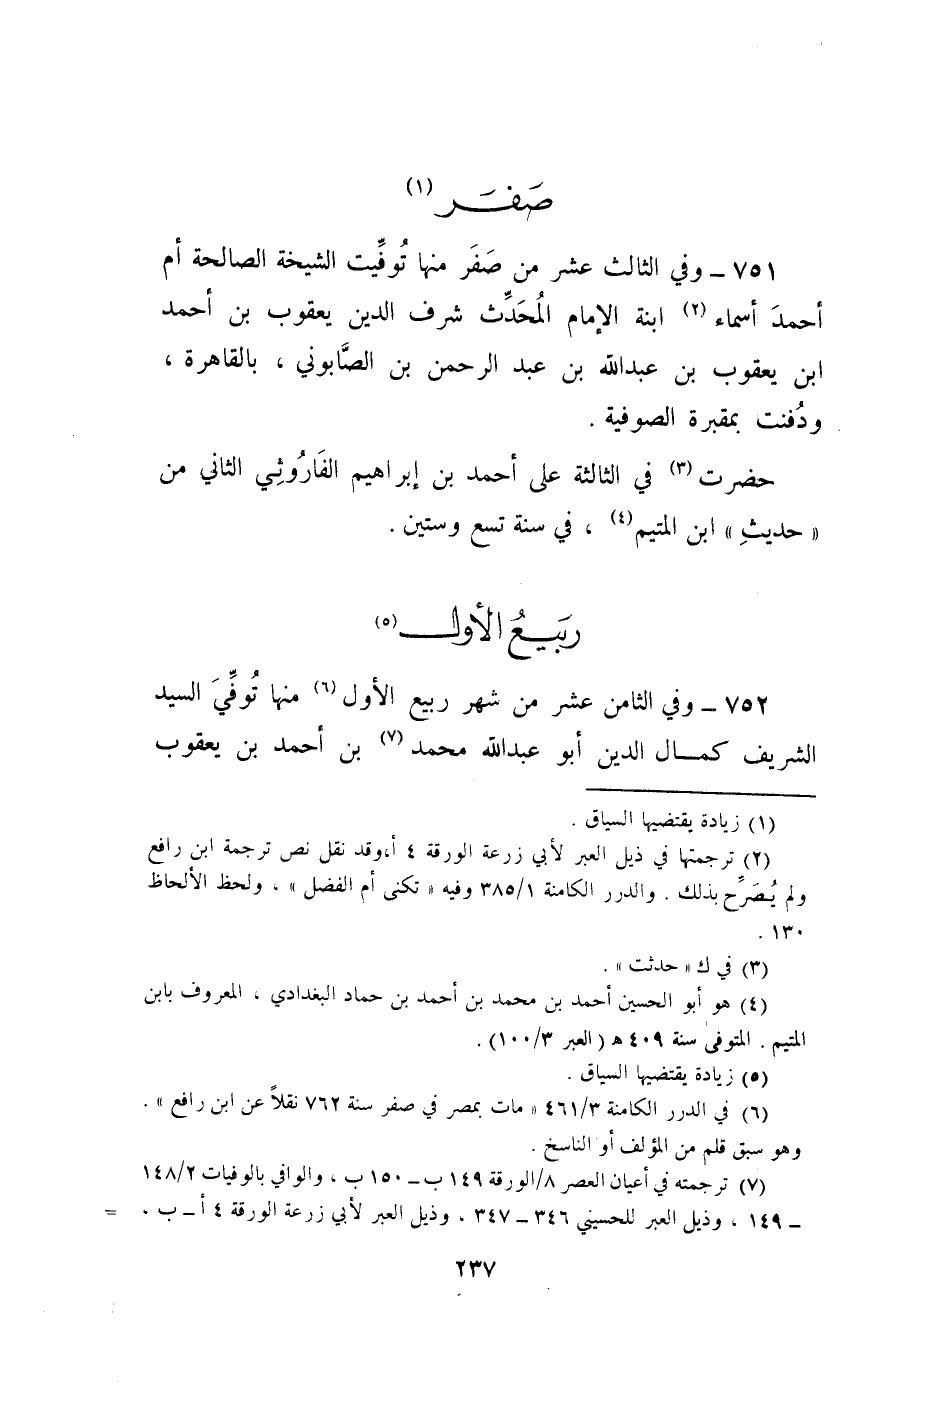 صَفَر (١)
٧٥١ ــ وفي الثالث عشر من صَفَر منها تُوفِّيت الشيخة الصالحة أم
أحمدَ أسماء (٢) ابنة الإمام المُحَدِّث شرف الدين يعقوب بن أحمد
ابن يعقوب بن عبدالله بن عبد الرحمن بن الصَّابوني ، بالقاهرة ،
ودُفنت بمقبرة الصوفية .
حضرت (٣) في الثالثة على أحمد بن إبراهيم الفَارُوثِي الثاني من
« حديثِ » ابن المتيم (٤) ، في سنة تسع وستين .
رَبيعُ الأول (٥)
٧٥٢ ــ وفي الثامن عشر من شهر ربيع الأول (٦) منها تُوفِّيَ السيد
الشريف كمال الدين أبو عبدالله محمد (٧) بن أحمد بن يعقوب
(١) زيادة يقتضيها السياق .
(٢) ترجمتها في ذيل العبر لأبي زرعة الورقة ٤ أ،وقد نقل نص ترجمة ابن رافع
ولم يُصَرِّح بذلك . والدرر الكامنة ٣٨٥/١ وفيه « تكنى أم الفضل » ، ولحظ الألحاظ
١٣٠ .
(٣) في ك « حدثت » .
(٤) هو أبو الحسين أحمد بن محمد بن أحمد بن حماد البغدادي ، المعروف بابن
المتيم . المتوفى سنة ٤٠٩ هـ (العبر ١٠٠/٣) .
(٥) زيادة يقتضيها السياق .
(٦) في الدرر الكامنة ٤٦١/٣ « مات بمصر في صفر سنة ٧٦٢ نقلاً عن ابن رافع » .
وهو سبق قلم من المؤلف أو الناسخ .
(٧) ترجمته في أعيان العصر ٨/الورقة ١٤٩ ب ــ ١٥٠ ب ، والوافي بالوفيات ١٤٨/٢
ــ ١٤٩ ، وذيل العبر للحسيني ٣٤٦ ــ ٣٤٧ . وذيل العبر لأبي زرعة الورقة ٤ أ ــ ب . =
٢٣٧